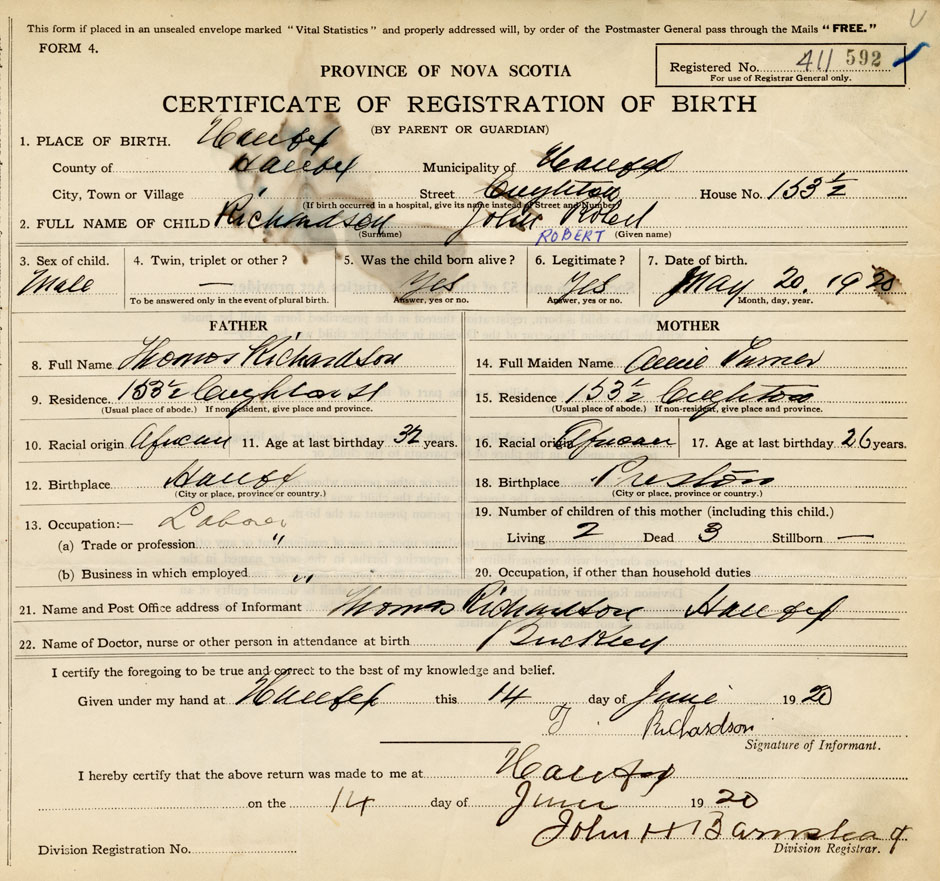 This form if placed in an unsealed envelope marked "Vital Statistics" and properly addressed will, by order of the Postmaster General pass through the Mails "FREE."
FORM 4.
Registered No. 411 592
For use of Registrar General only.
PROVINCE OF NOVA SCOTIA
CERTIFICATE OF REGISTRATION OF BIRTH
(BY PARENT OR GUARDIAN)
1. PLACE OF BIRTH. Halifax
County of Halifax Municipality of Halifax
City, Town or Village " Street Creighton House No. 153½
(If birth occurred in a hospital, give its name instead of Street and Number)
2. FULL NAME OF CHILD Richardson John Robert
(Surname) ROBERT (Given name)
3. Sex of child. 4. Twin, triplet or other? 5. Was the child born alive? 6. Legitimate? 7. Date of birth.
Male — Yes Yes May 20. 1920
To be answered only in the event of plural birth. Answer, yes or no. Answer, yes or no. Month, day, year.
FATHER MOTHER
8. Full Name Thomas Richardson 14. Full Maiden Name Annie Turner
9. Residence. 153½ Creighton St 15. Residence 153½ Creighton
(Usual place of abode.) If non-resident, give place and province. (Usual place of abode.) If non-resident, give place and province.
10. Racial origin African 11. Age at last birthday years. 16. Racial origin African 17. Age at last birthday 26 years.
12. Birthplace Halifax 18. Birthplace Preston
(City or place, province or country.) (City or place, province or country.)
13. Occupation:— Laborer 19. Number of children of this mother (including this child.)
(a) Trade or profession " Living 2 Dead 3 Stillborn —
(b) Business in which employed " 20. Occupation, if other than household duties
21. Name and Post Office address of Informant Thomas Richardson Halifax
22. Name of Doctor, nurse or other person in attendance at birth Buckley
I certify the foregoing to be true and correct to the best of my knowledge and belief.
Given under my hand at Halifax this 14 day of June 1920
T. Richardson
Signature of Informant.
I hereby certify that the above return was made to me at Halifax
on the 14 day of June 1920
John H Barnstead
Division Registration No. Division Registrar.